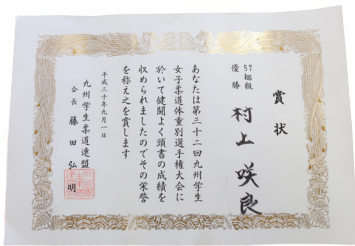 賞状
57kg級
優勝
村上咲良
あなたは第三十二回九州学生
女子柔道体重別選手権大会に
於いて健闘よく頭書の成績を
収められましたのでその栄誉
を称え之を賞します
平成三十年九月一日
九州学生柔道連盟
会長 藤田弘明